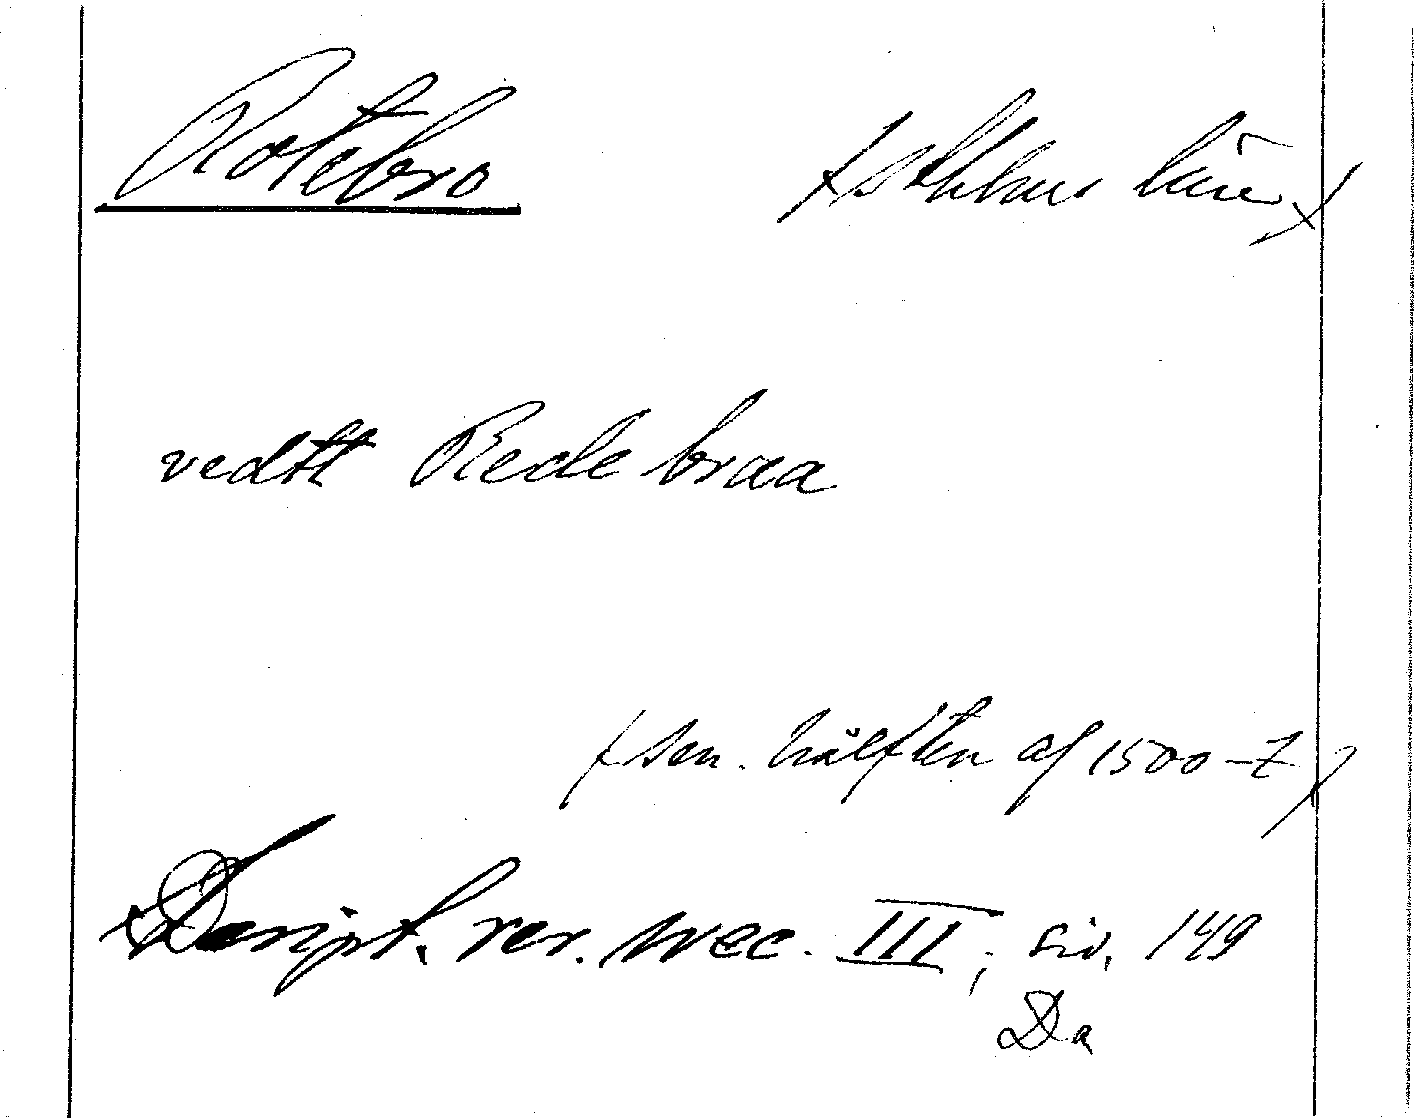 Rotebro
(Sthlms län)
vedtt Rede braa
(sen. hälften af 1500-t)
Script. rer. svec. III, sid. 149
Da